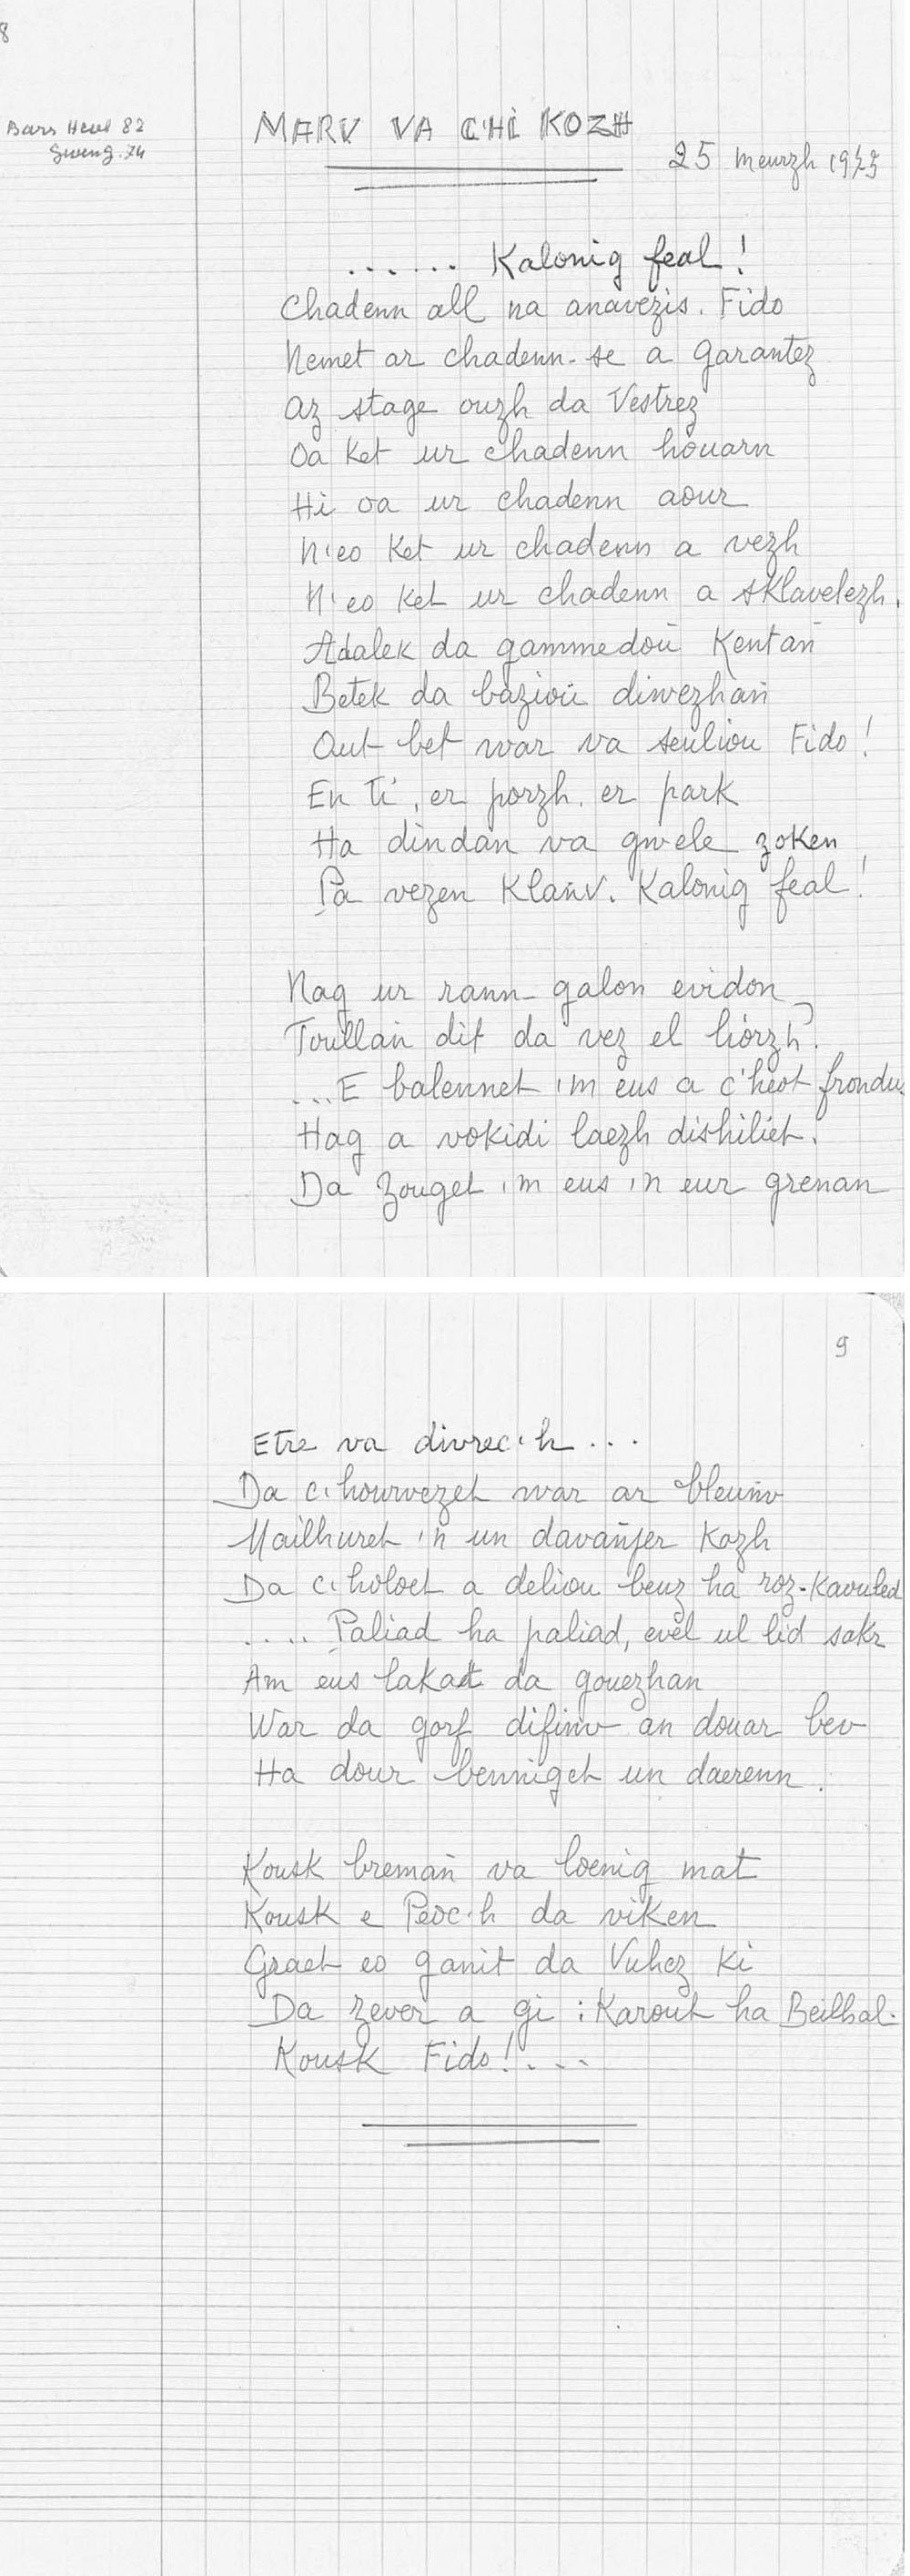 8
Barr Heol 82
Gweng. 74
MARV VA C'HI KOZH
25 meurzh 1975
...... Kalonig feal !
Chadenn all na anavezis. Fido
Nemet ar chadenn-se a garantez
Az stage ouzh da Vestrez
Oa ket ur chadenn houarn
Hi oa ur chadenn aour
N'eo ket ur chadenn a vezh
N'eo ket ur chadenn a sklavelezh.
Adalek da gammedoù kentañ
Betek da bazioù diwezhañ
Out bet war va seuliou Fido !
En ti, er porzh, er park
Ha dindan va gwele zoken
Pa vezen klañv. Kalonig feal !
Nag ur rann-galon evidon
Toullañ dit da vez el liorzh ?
...E balennet 'm eus a c'heot frondus
Hag a vokidi laezh dishiliet.
Da zouget 'm eus 'n eur grenan
9
Etre va divrec'h ...
Da c'hourvezet war ar bleuñv
Mailhuret 'n un davañjer kozh
Da c'holoet a deliou beuz ha roz-kaouled
.... Paliad ha paliad, evel ul lid sakr
Am eus lakaet da gouezhan
War da gorf difinv an douar bev
Ha dour benniget un daerenn.
Kousk bremañ va loenig mat
Kousk e Peoc'h da viken
Graet eo ganit da Vuhez ki
Da zever a gi : Karout ha Beilhal.
Kousk Fido !....